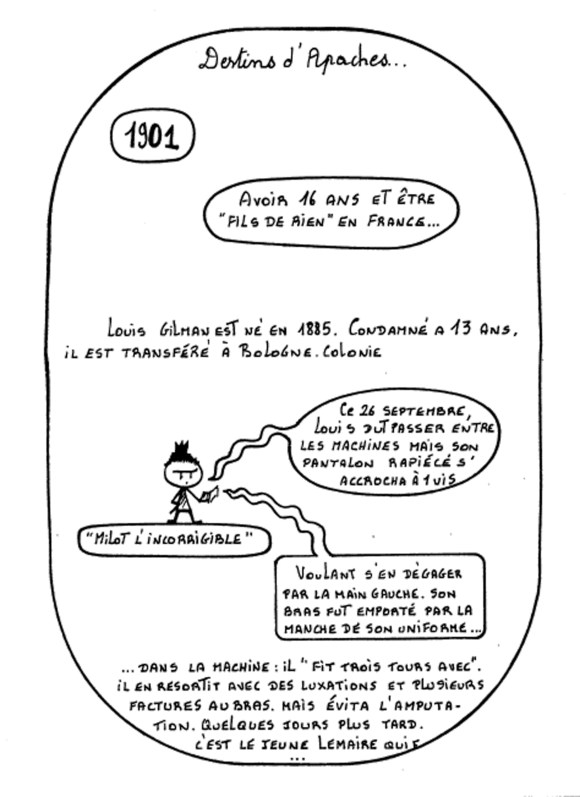 Destins d'Apaches...
1901
Avoir 16 ans et être
"fils de rien" en France...
Louis Gilman est né en 1885. Condamné a 13 ans,
il est transféré à Bologne.Colonie
Ce 26 septembre,
Louis dut passer entre
les machines mais son
pantalon rapiécé s'
accrocha à 1 vis
"Milot l'incorrigible"
Voulant s'en dégager
par la main gauche. Son
bras fut emporté par la
manche de son uniforme...
...dans la machine : il "fit trois tours avec".
il en resortit avec des luxations et plusieurs
factures au bras. Mais évita l'amputa-
tion. Quelques jours plus tard.
c'est le jeune Lemaire qui
...